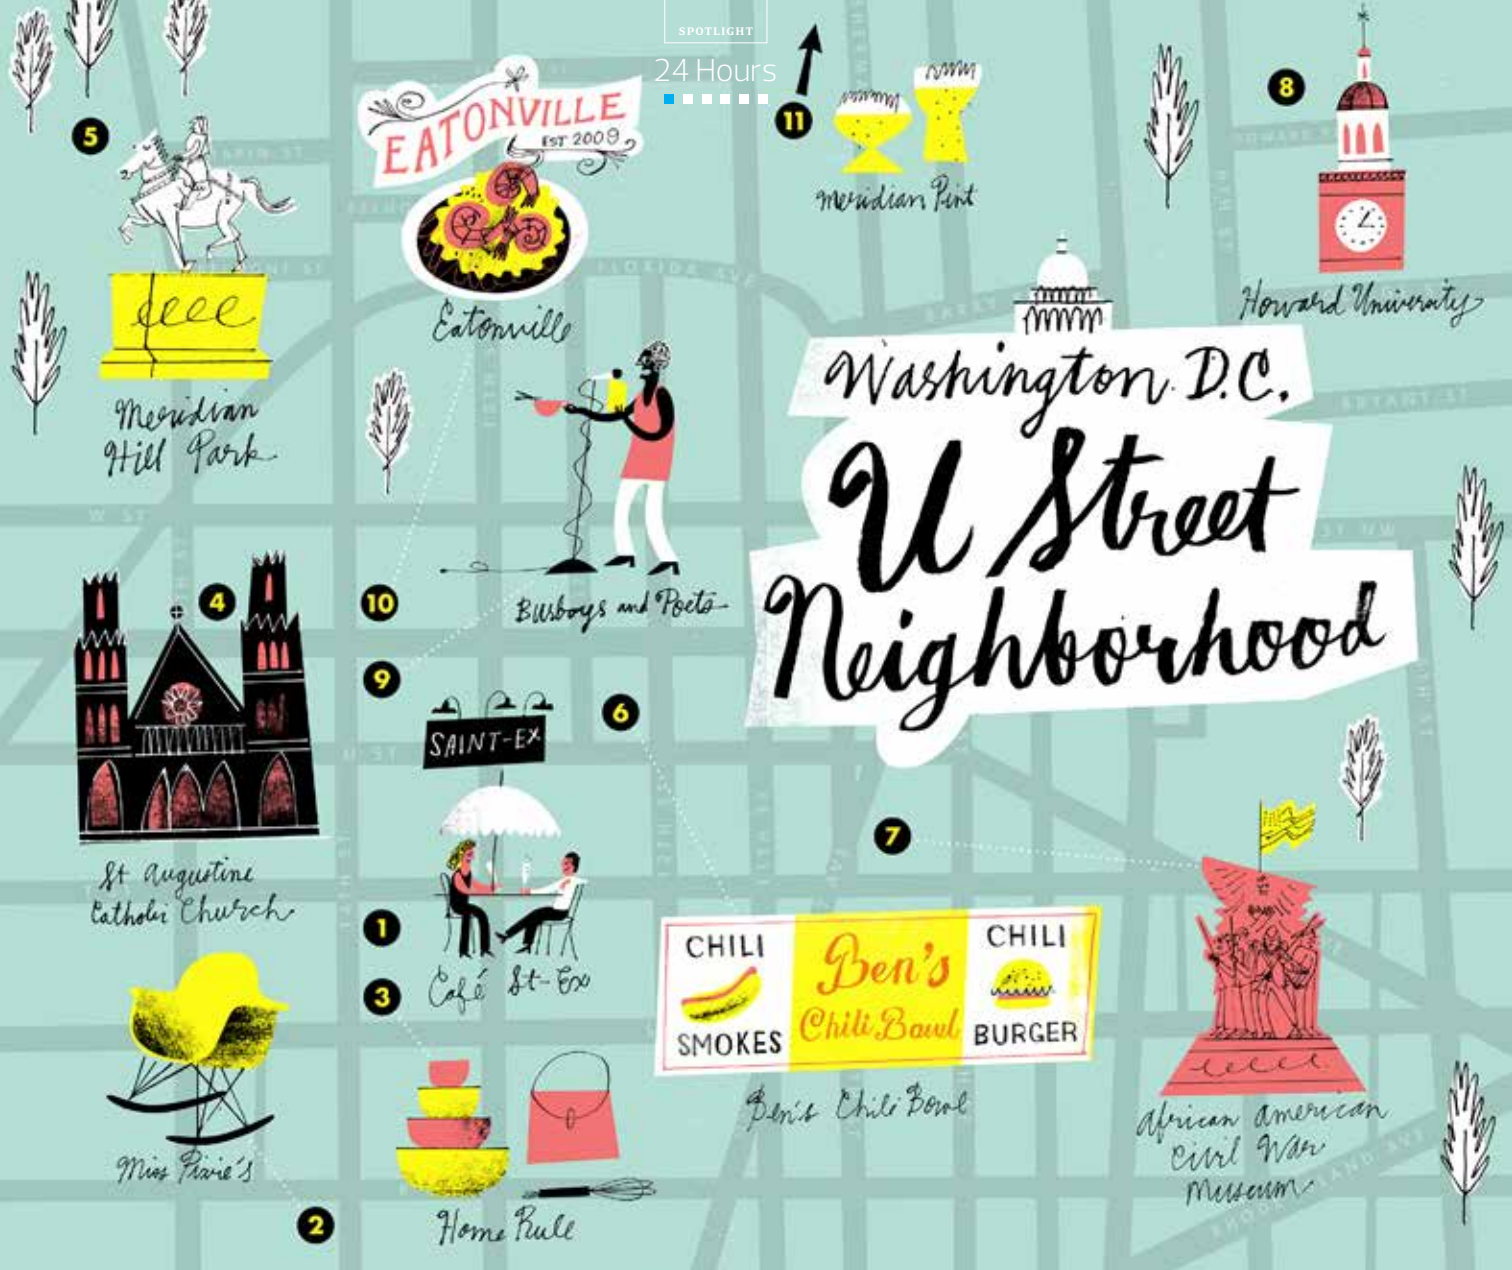 SPOTLIGHT
24 Hours
5
EATONVILLE
EST 2009
Eatonville
11
Meridian Pint
8
Howard University
Meridian
Hill Park
Washington D.C.
U Street
Neighborhood
FLORIDA AVE
BARRY
BRYANT ST
W ST
ST NW
4
10
Busboys and Poets
9
6
SAINT-EX
U ST
7
St Augustine
Catholic Church
1
Café St-Ex
3
CHILI
SMOKES
Ben's
Chili Bowl
CHILI
BURGER
Ben's Chili Bowl
African American
Civil War
Museum
Miss Pixie's
2
Home Rule